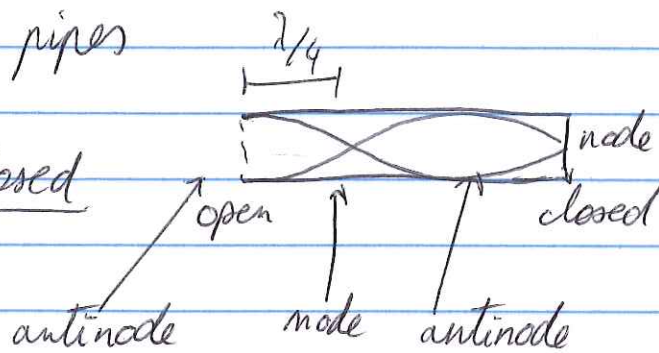 pipes
λ/4
node
open
closed
antinode
node
antinode